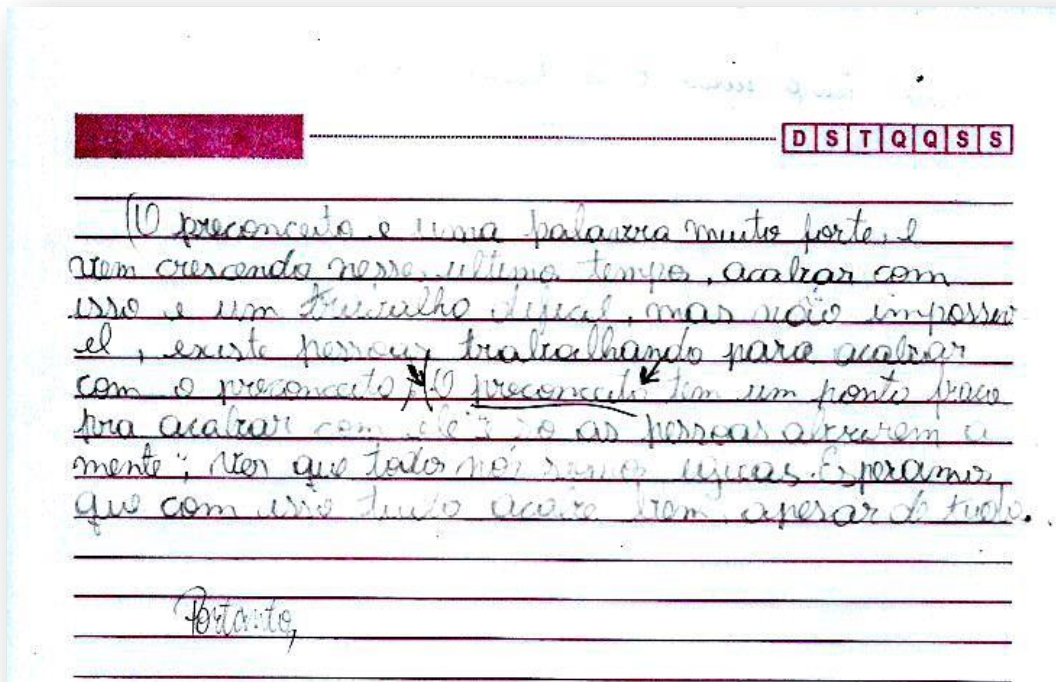 D S T Q Q S S
(O preconceito e uma palavra muito forte, e
vem crescendo nesse ultimo tempo, acabar com
isso e um trabalho dificil, mas não impossiv
el, existe pessoas trabalhando para acabar
com o preconceito) (O preconceito tem um ponto fraco
pra acabar com ele é so as pessoas abrirem a
mente", ver que todo nós somos iguais. Esperamos
que com isso tudo acabe bem apesar de tudo.
Portanto,